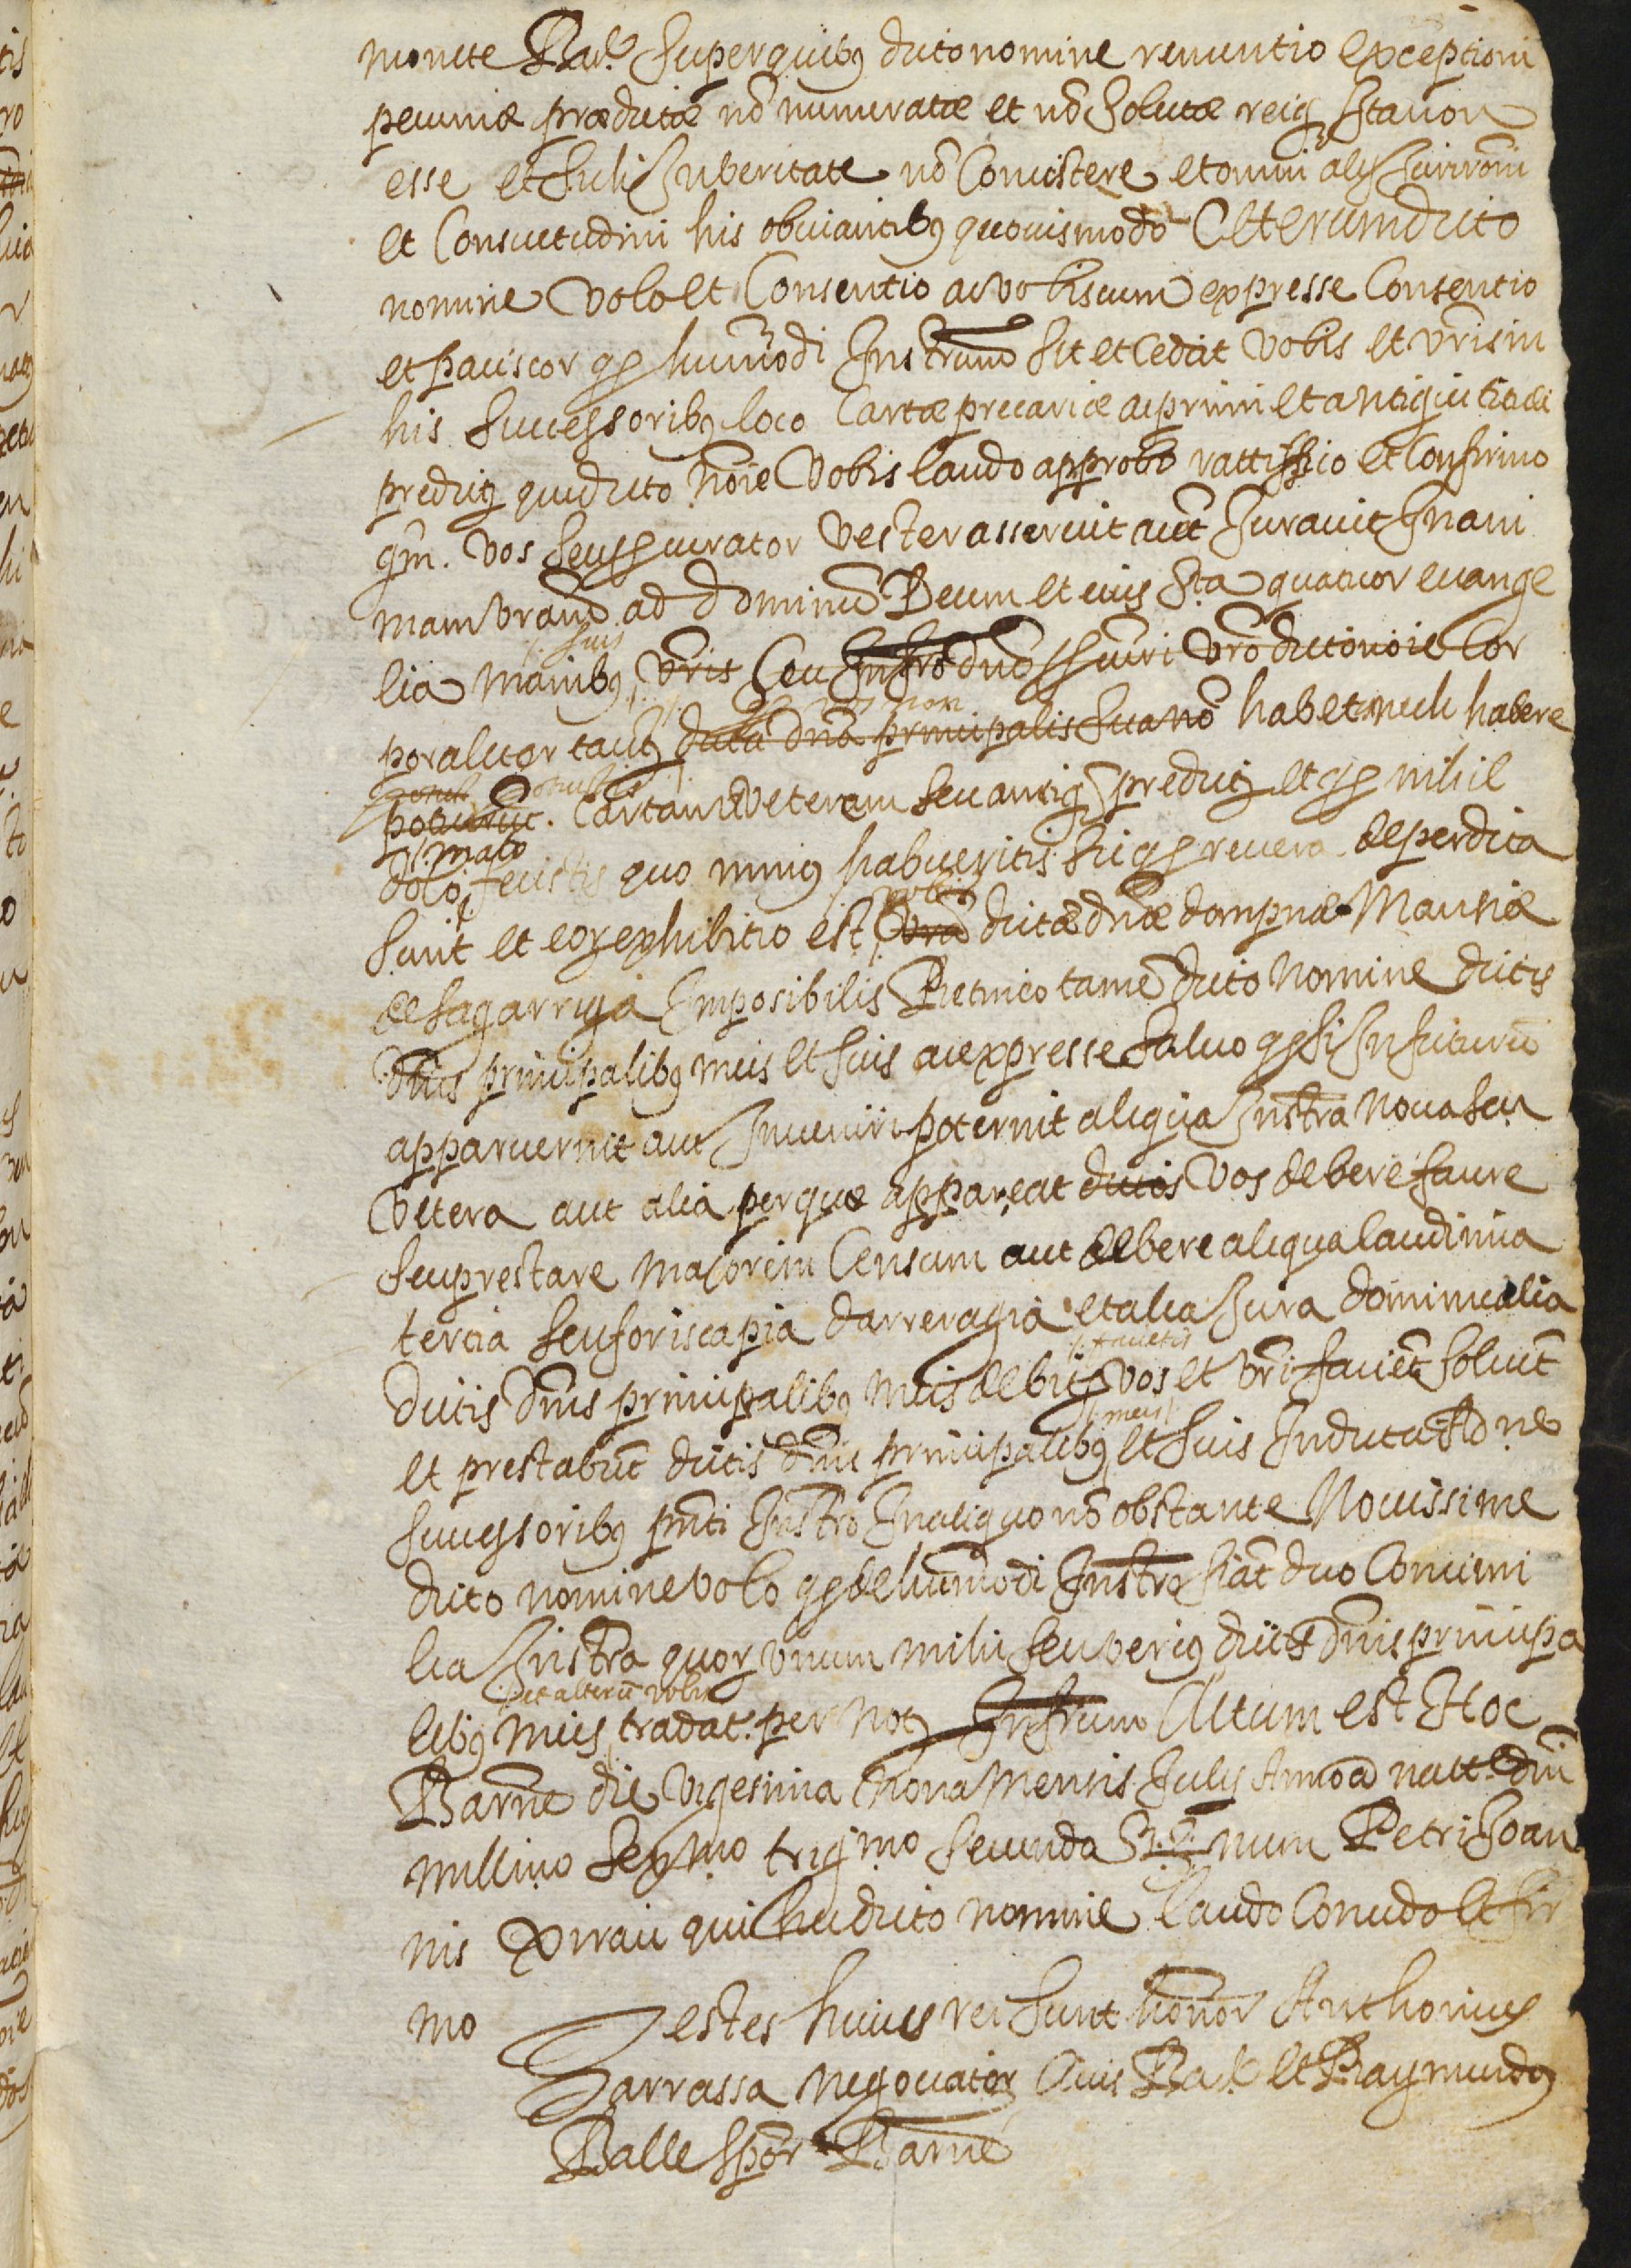 monete Bar.e Superquibus dictonomine renuntio exceptioni
pecuniæ prædictæ nõ numeratæ et nõ Solutæ reiq. Itanon
esse et Sic Inveritate nõ Consistere et omni alij Iuri rõni
et Consuetudini his obviantibus quovismodo Ceterumdicto
nomine volo et Consentio ac vobiscum expresse Consentio
et paciscor qp humõdi Instrum Sit et Cedat vobis et vris in
his Successoribus loco Cartæ precariæ acprimi et antiqui tituli
predicq quidicto noie vobis laudo approbo rattiffico et Confirmo
qm. vos Seu procurator vester asseruit aut Iuravit In ani
mam vram ad dominũ Deum et eius Sta quatuor evange
lia manibus suis vris Ceu Infro dno procuri vro dicto noie Cor
poraliter tactis dicta dña principalis Sua nõ habet nech habere
potuerut. Cartam Veteram Seu antiq predicq et qp nihil
dolo malo fecistis quo minus habueritis Sic qp revera deperdita
Sunt et eor exhibitio est vobis vra dictæ dnæ dompnæ Mariæ
de Sagarriga Imposibilis Retinco tamẽ dicto Nomine dictis
Dnis principalibus meis et Suis acexpresse Salvo qp Si Infuturũ
apparuernit aut Inveniri poternit aliqua Instra Nova Seu
vetera aut alia per quæ appareat dictos vos debere facere
Seuprestare majorem Censum aut debere aliqua laudimia
tercia Seuforiscapia darreragia et alia Iura dominicalia
dictis Dnis principalibus meis debita vos et vri facietis faciẽt Solvẽt
et prestabũt dictis dnis principalibus meis et Suis Inductis
Successoribus pnti Instro Inaliquo nõ obstante Novissime
dicto nomine volo qp de humõdi Instro fiat duo Consimi
lia Instra quor vnum mihi Seu verius dictis dnis principa
libus meis et alterũ vobis tradat. per Notm Infrum Actum est Hoc
Barne die vigesima Nona Mensis Julij Anno a natt.e dni
millimo Sexmo trigmo Secundo Sig num Petri Joan
nis Xirau qui hec dicto nomine laudo Concedo et fir
mo Testes huius rei Sunt honor Anthonius
Tarrassa Negociator Civis Bar.e et Raymundus
Balle Spor Barne